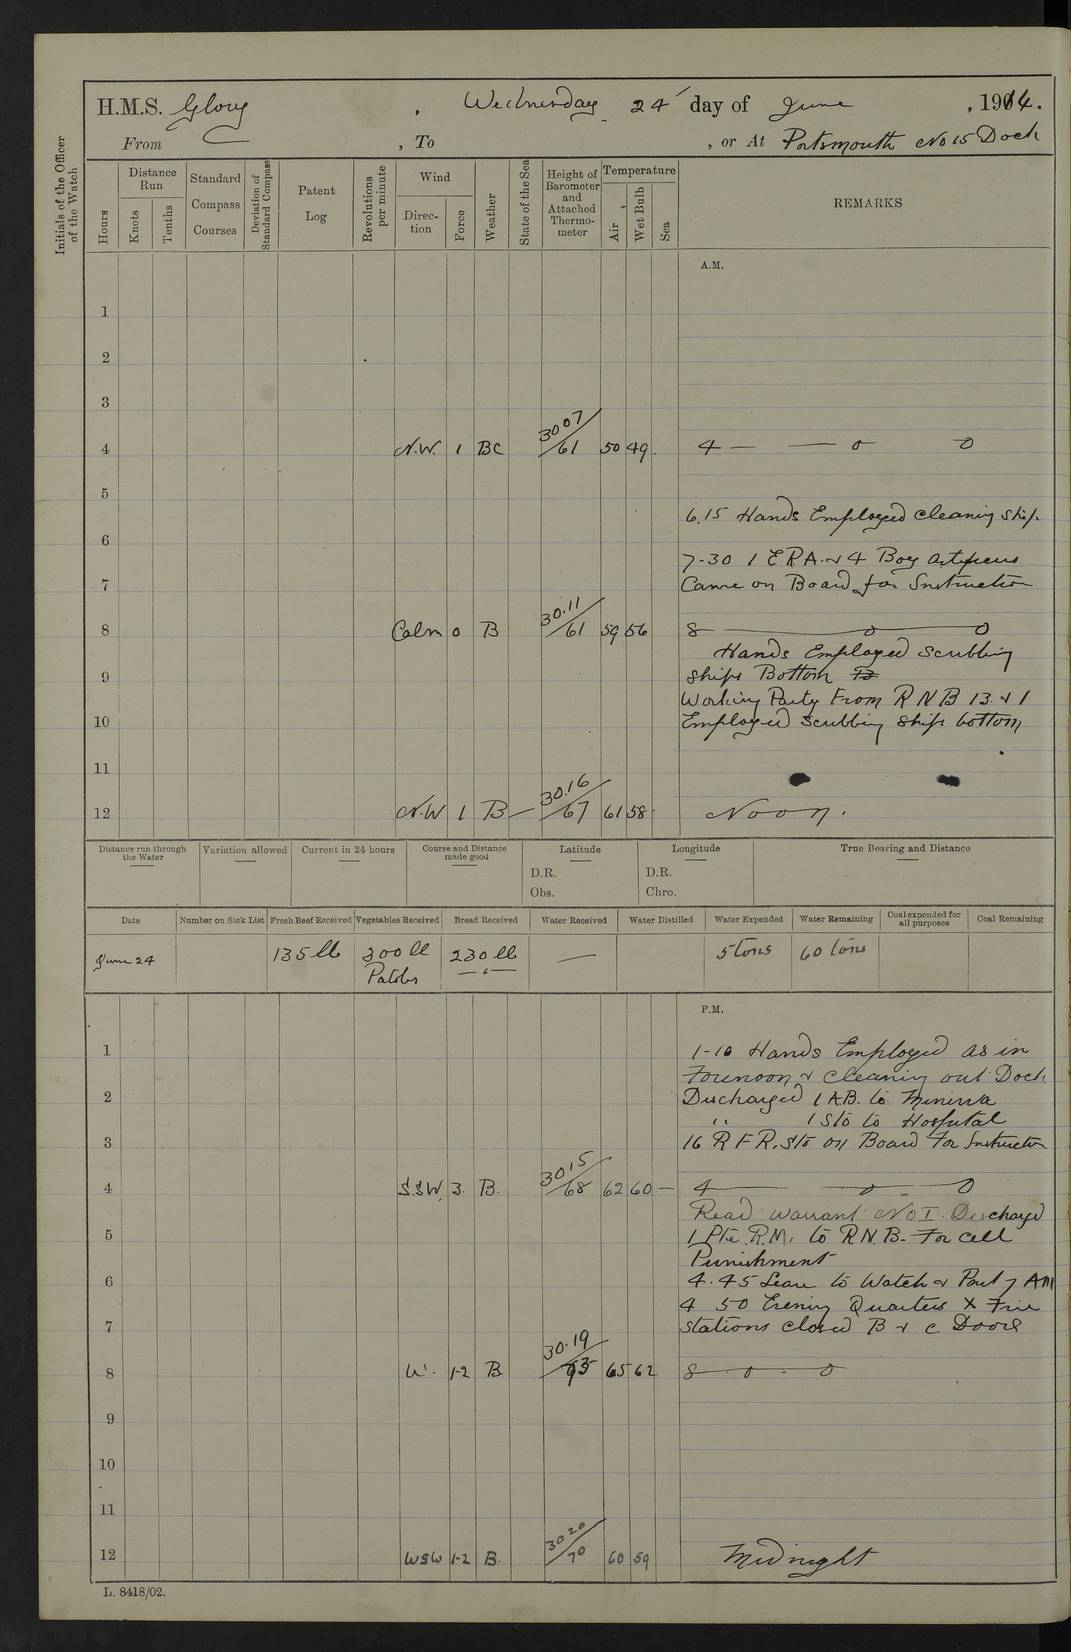 H.M.S. Glory , Wednesday 24 day of June , 1914.
From — , To , or At Portsmouth No 15 Dock
Initials of the Officer of the Watch
Hours
Distance Run
Knots
Tenths
Standard Compass Courses
Deviation of Standard Compass
Patent Log
Revolutions per minute
Wind
Direction
Force
Weather
State of the Sea
Height of Barometer and Attached Thermometer
Temperature
Air
Wet Bulb
Sea
REMARKS
A.M.
1
2
3
4 N.W. 1 BC 30 07/61 50 49. 4 — — o — o
5
6.15 Hands Employed cleaning ship
6
7-30 1 ERA. & 4 Boy Artificers
7 Came on Board for Instruction
8 Calm 0 B 30.11/61 59 56 8 — o — o
Hands Employed scrubbing
9 ships Bottom
Working Party From R N B 13 & 1
10 Employed scrubbing ships bottom
11
12 N.W 1 B — 30.16/67 61 58 Noon.
Distance run through the Water
Variation allowed
Current in 24 hours
Course and Distance made good
Latitude
D.R.
Obs.
Longitude
D.R.
Chro.
True Bearing and Distance
Date Number on Sick List Fresh Beef Received Vegetables Received Bread Received Water Received Water Distilled Water Expended Water Remaining Coal expended for all purposes Coal Remaining
June 24 135 lb 300 lb 230 lb — 5 tons 60 tons
P.M.
1 1-10 Hands Employed as in
Forenoon & cleaning out Dock
2 Discharged 1 A.B. to Minerva
" 1 Sto to Hospital
3 16 R F R. Sto on Board For Instruction
4 S.S.W. 3. B. 30 15/68 62 60 — 4 — o — o
Read warrant No I. Discharged
5 1 Pte R.M. to R.N.B. For cell
Punishment
6 4.45 Leave to Watch & Part 7 AM
4 50 Evening Quarters X Fire
7 Stations closed B & C Doors
8 W. 1-2 B. 30.19/73 65 62 8 — o — o
9
10
11
12 WSW 1-2 B. 30 20/70 60 59 Midnight
L. 8418/02.